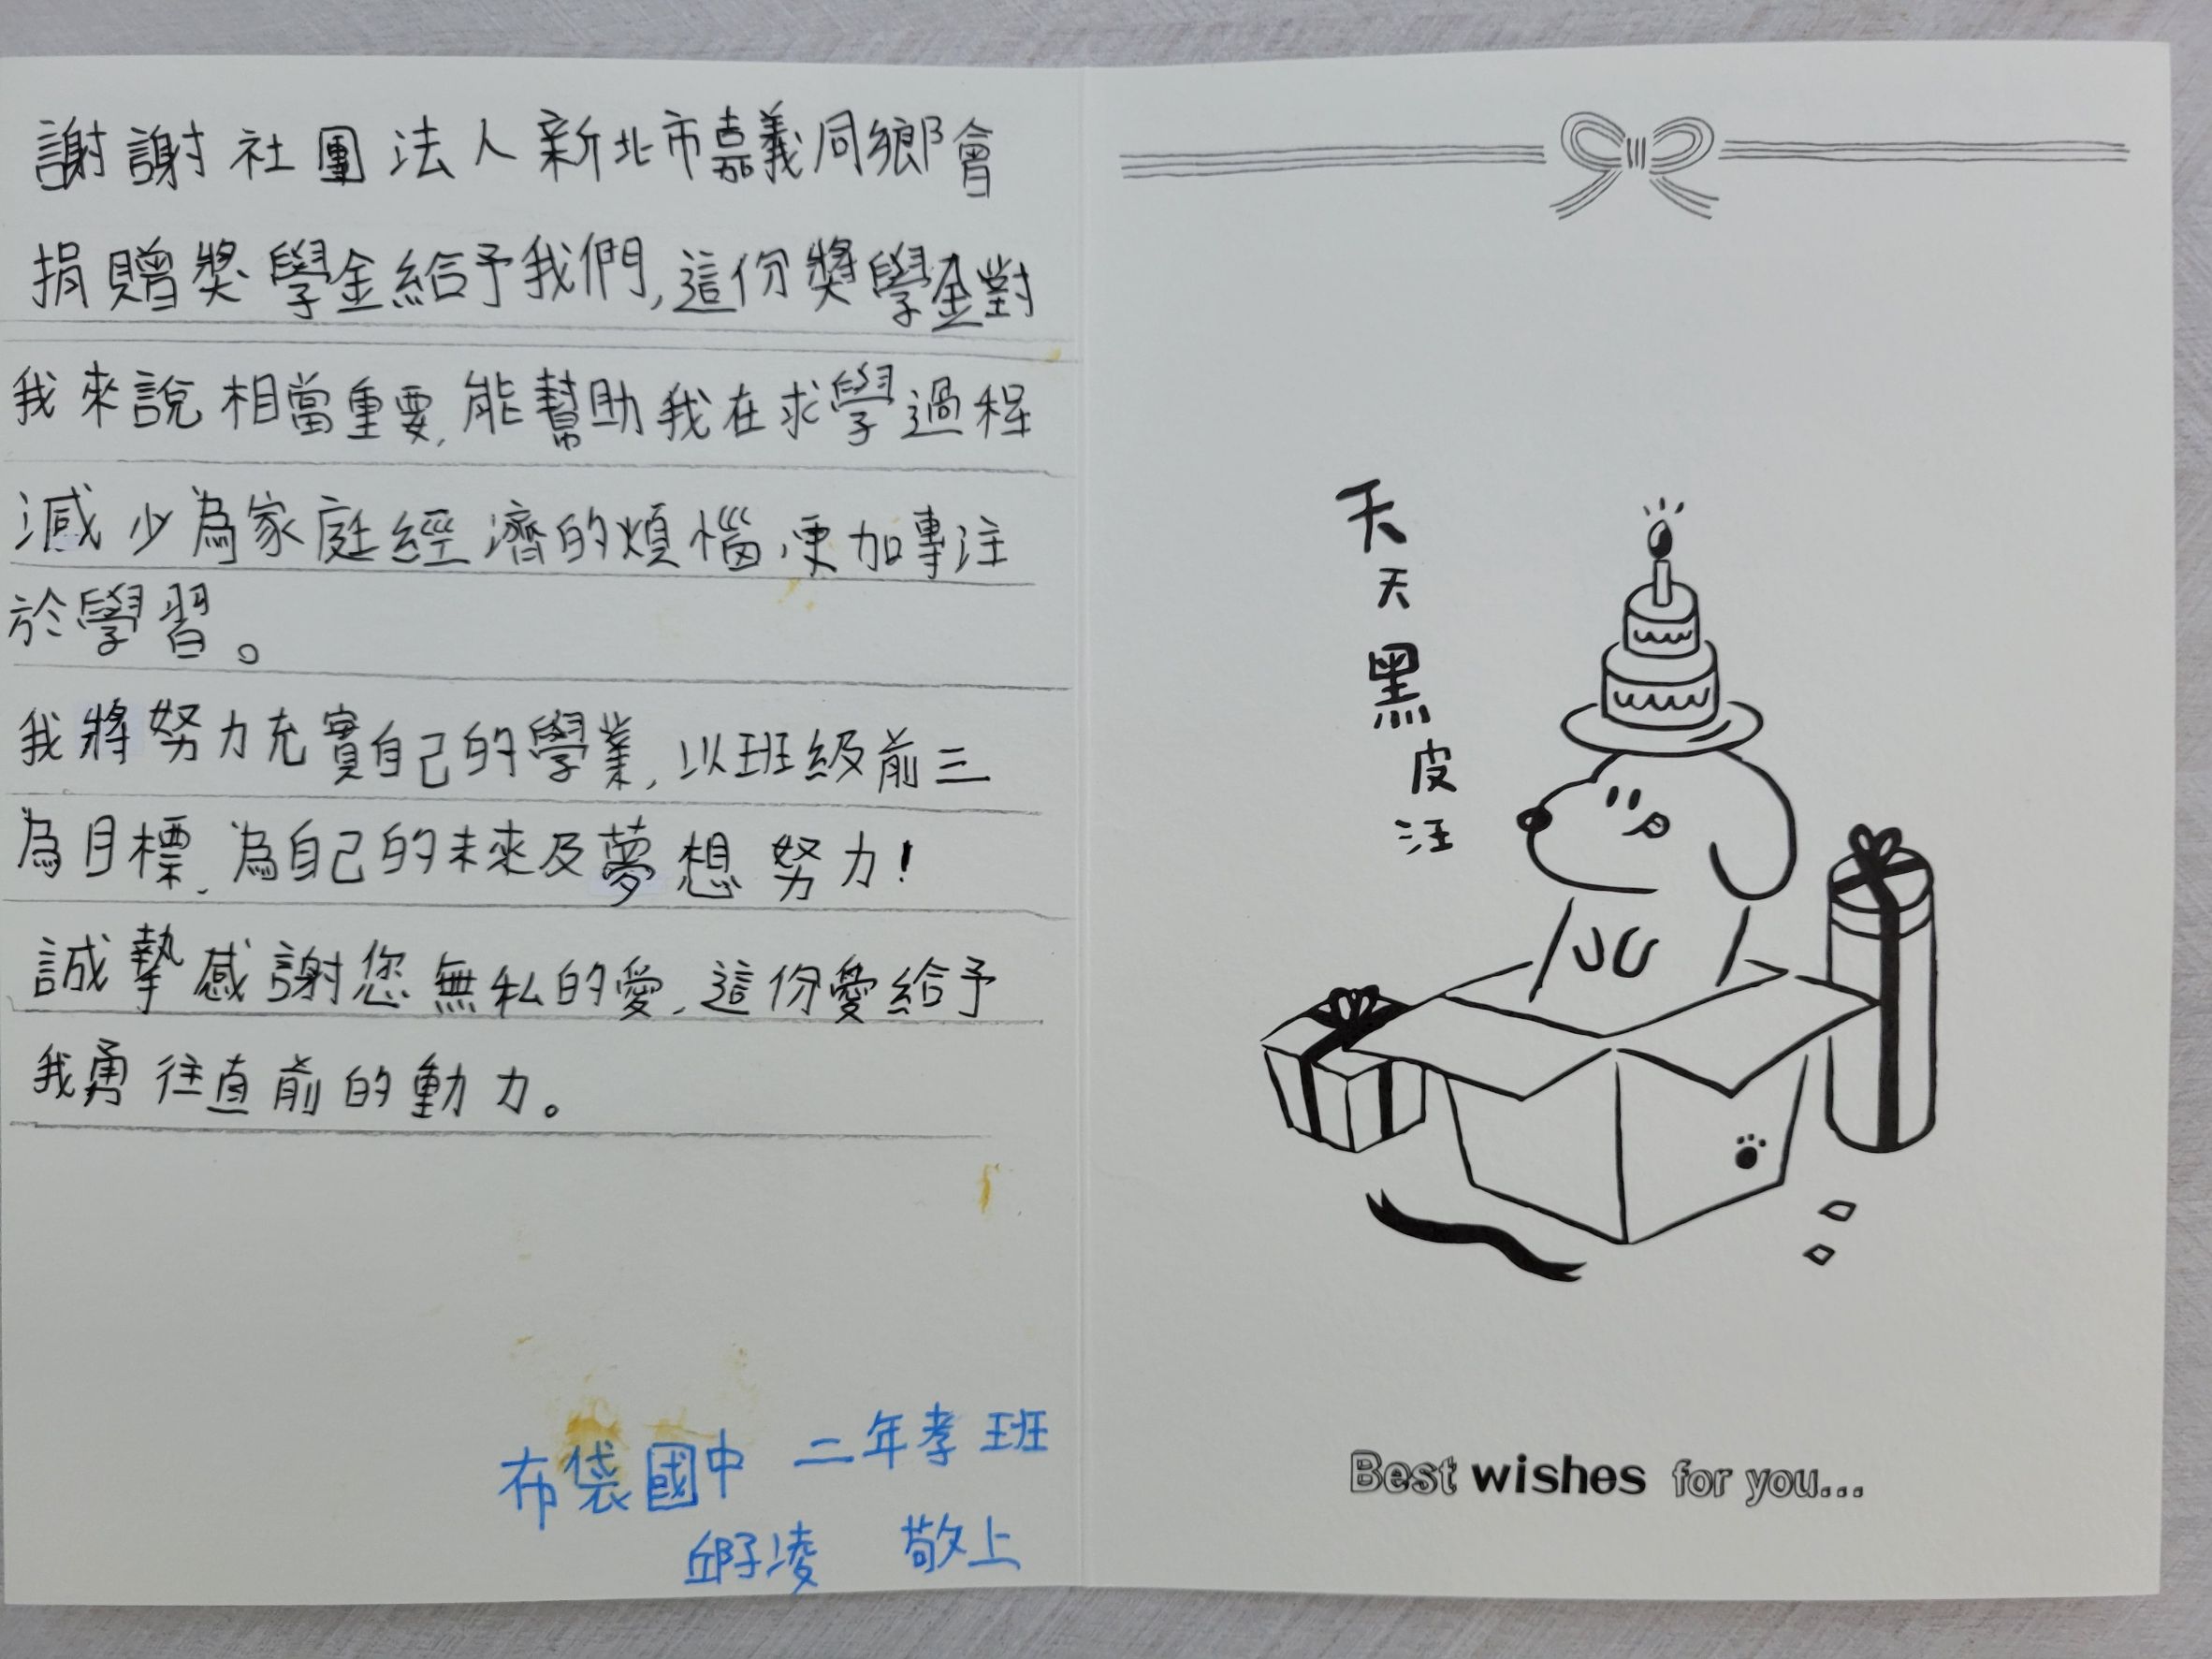 謝謝社團法人新北市嘉義同鄉會
捐贈獎學金給予我們,這份獎學金對
我來說相當重要,能幫助我在求學過程
減少為家庭經濟的煩惱,更加專注
於學習。
我將努力充實自己的學業,以班級前三
為目標,為自己的未來及夢想努力!
誠摯感謝您無私的愛,這份愛給予
我勇往直前的動力。
布袋國中 二年孝班
邱子凌 敬上
天天黑皮汪
Best wishes for you...